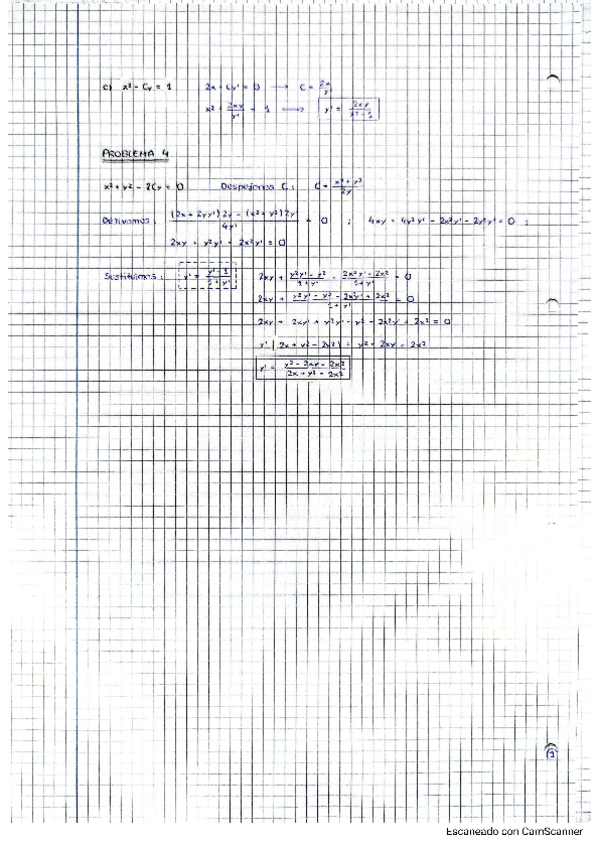 c) x² - Cy = 1    2x - Cy' = 0 → C = 2x/y'
x² - 2xy/y' = 1 → y' = 2xy/(x² - 1)
PROBLEMA 4
x² + y² - 2Cy = 0    Despejamos C:    C = (x² + y²)/2y
Derivamos: ((2x + 2yy')2y - (x² + y²)2y')/4y² = 0 ; 4xy + 4y²y' - 2x²y' - 2y²y' = 0 ;
2xy + y²y' - 2x²y' = 0
Sustituimos: y' = (y' - 1)/(1 + y')    2xy + (y²y' - y²)/(1 + y') - (2x²y' - 2x²)/(1 + y') = 0
2xy + (y²y' - y² - 2x²y' + 2x²)/(1 + y') = 0
2xy + 2xy' + y²y' - y² - 2x²y' + 2x² = 0
y' [2x + y² - 2x²] = y² - 2xy - 2x²
y' = (y² - 2xy - 2x²)/(2x + y² - 2x²)
1
Escaneado con CamScanner